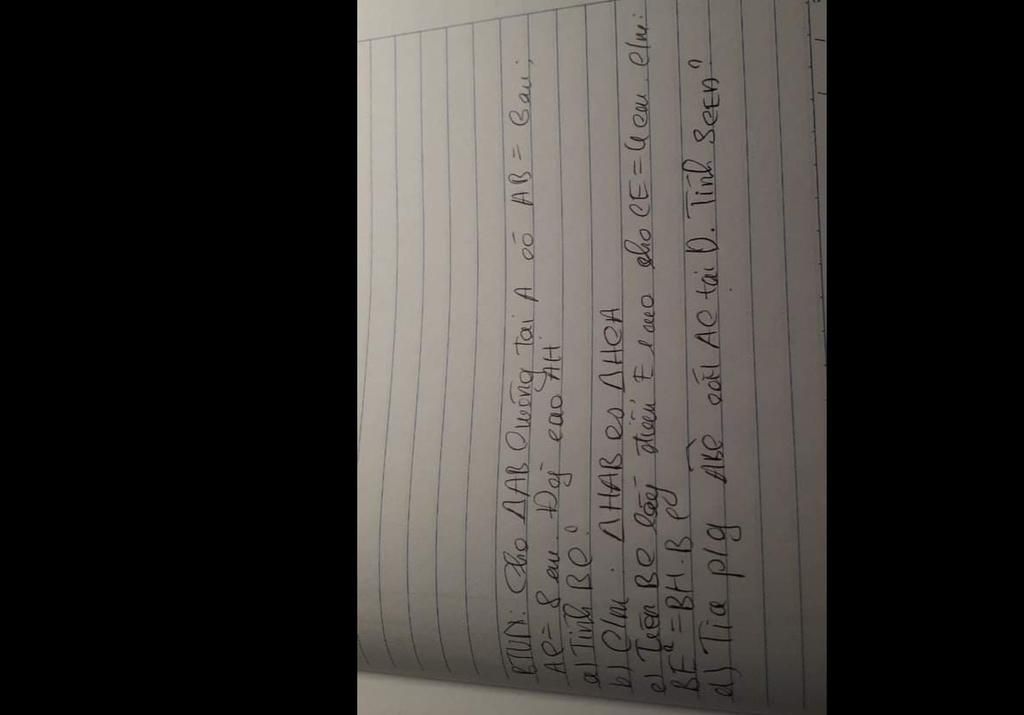 BTVN: Cho ΔABC vuông tại A có AB = 6cm;
AC = 8cm. Đg cao AH
a) Tính BC?
b) C/m: ΔHAB ∽ ΔHCA
c) Trên BC lấy điểm E sao cho CE = 4cm. C/m:
BE² = BH.BC
d) Tia p/g ABC cắt AC tại D. Tính SCED?